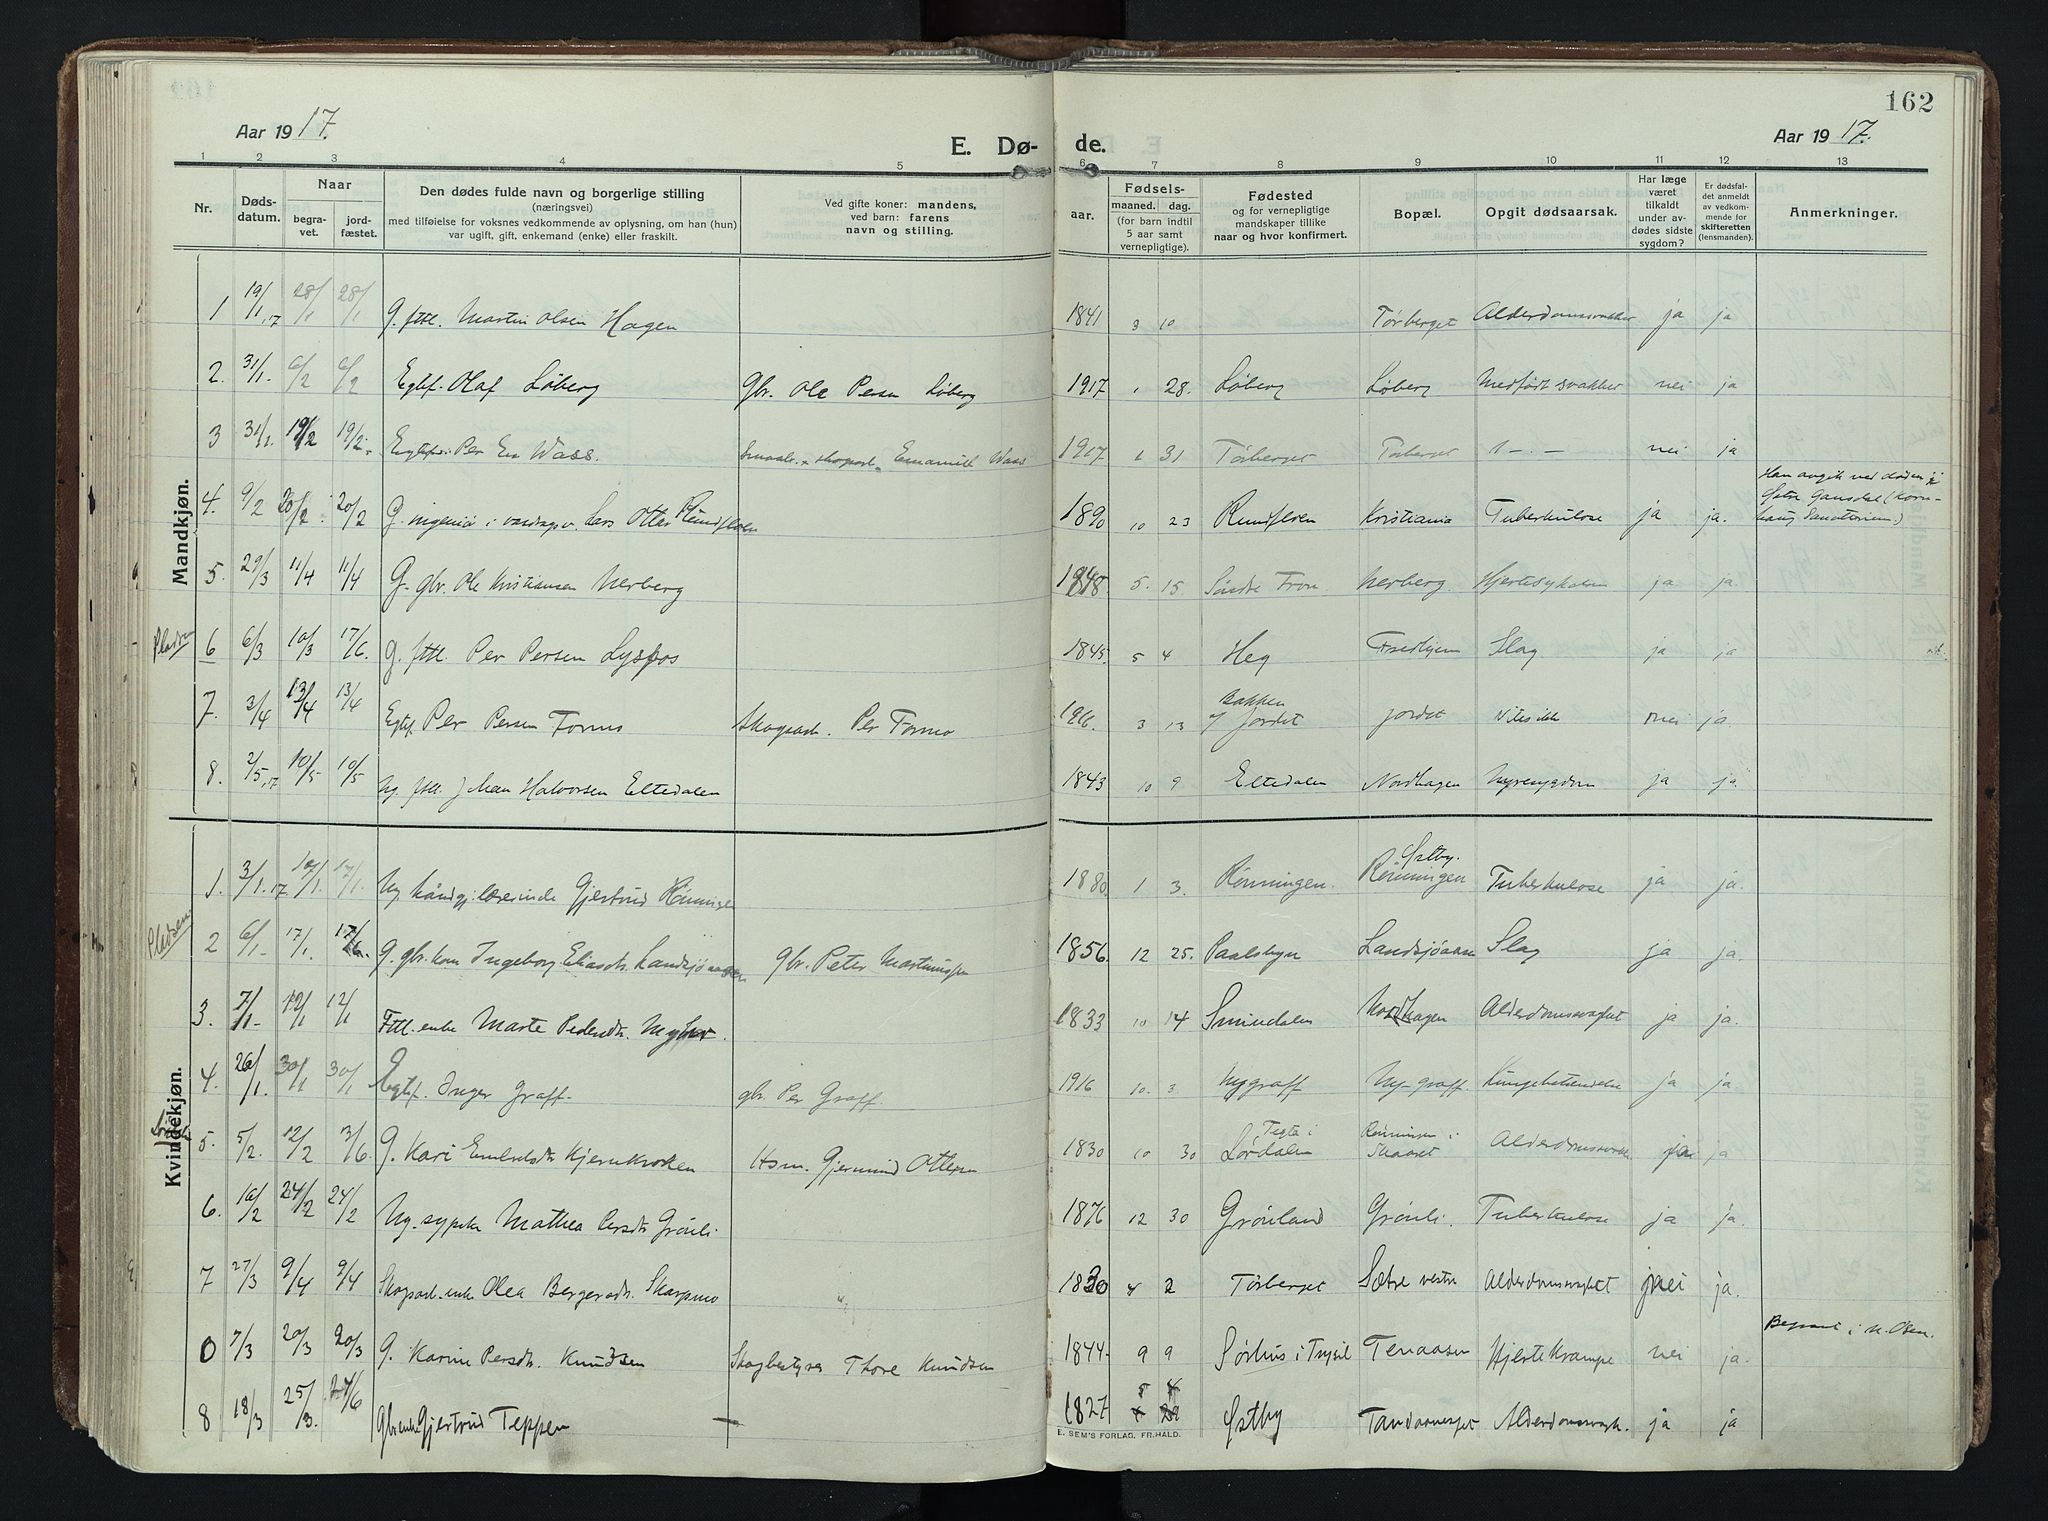 162
Aar 1917. E. Dø- de. Aar 1917.
1 2 3 4 5 6 7 8 9 10 11 12 13
Nr.
Døds-
datum.
Naar
begra-
vet.
jord-
fæstet.
Den dødes fulde navn og borgerlige stilling
(næringsvei)
med tilføielse for voksnes vedkommende av oplysning, om han (hun)
var ugift, gift, enkemand (enke) eller fraskilt.
Ved gifte koner: mandens,
ved barn: farens
navn og stilling.
Fødsels-
aar.
maaned. dag.
(for barn indtil
5 aar samt
vernepligtige).
Fødested
og for vernepligtige
mandskaper tillike
naar og hvor konfirmert.
Bopæl.
Opgit dødsaarsak.
Har læge
været
tilkaldt
under av-
dødes sidste
sygdom?
Er dødsfal-
det anmeldt
av vedkom-
mende for
skifteretten
(lensmanden).
Anmerkninger.
Mandkjøn.
1 19/1.17 28/1 28/1 G. fttl. Martin Olsen Hagen 1841 3 10 Tørberget ja ja
2. 31/1. 6/2 6/2 Egtef. Olaf Løberg Gbr. Ole Persen Løberg 1917 1 28. Løberg Løberg Medfødt svakhet nei ja
3 31/1. 19/2 19/2. Per Wass. Emanuel Wass 1917 1 31 Tørberget Tørberget nei ja
4. 9/2 20/2 20/2 G. ingeniør i Lars Otter Rundfloen 1890 10 23 Rundfloen Kristiania Tuberkulose ja ja. Han avgik ved døden
Sanatorium.)
5. 29/3 11/4 11/4 G. gbr. Ole Kristiansen Nerberg 1848. 5. 15 Søndre Fron. Nerberg. ja ja
6 6/3 10/3 17/6. G. fttl. Per Persen 1845. 5 4 Heg Slag ja ja
7. 3/4 13/4 13/4 Egtef. Per Persen Formo Skogsarb. Per Formo 1916. 3 13 Bakken
Jordet Jordet nei ja.
8. 2/5.17 10/5 10/5 Ug. fttl. Johan Halvorsen Eltedalen 1843 10 9 Eltedalen Nordhagen Nyresygdom ja ja.
Kvindekjøn.
1. 3/1.17 10/1. 17/1. Ug. håndgj. lærerinde Gjertrud Rønningen 1880 1 3. Rønningen. Østby.
Rønningen Tuberkulose ja ja.
Pladsen
2 6/1. 17/1. 17/6. G. gbr. kone Ingeborg Eliasdtr. Landsjøaasen gbr. Peter Martinussen 1856. 12 25. Paalsbyen Landsjøaasen Slag ja ja.
3. 7/1 12/1 12/1 Fttl. enke Marte Pedersdtr. 1833 10 14 Nordhagen Alderdomssvaghet ja ja.
4. 26/1. 30/1 30/1 Egtef. Inger Graff. gbr. Per Graff. 1916 10. 3. Nygraff Ny-graff. Lungebetændelse ja ja.
5. 5/2. 12/2 13/6 G. Kari Kjernkroken Hsm. Gjermund Ottersen 1830 10 30 Lørdalen ja ja
6. 16/2 24/2 24/2 Ug. sypike Mathea Persdtr. Grønli. 1876 12 30 Grønland Grønli. Tuberkulose ja ja.
7 27/3 9/4 9/4 Skogsarb. enke Olea Bergersdtr. Skarpmo 1830 4 2 Tørberget Sætre vestre Alderdomssvaghet nei ja.
0 7/3 20/3 20/3 G. Karine Persdtr. Knudsen Skogbestyrer Thore Knudsen 1844. 9 9 Sørhus i Trysil Tenaasen Hjertekrampe nei ja.
8 18/3 25/3. 24/6 Gbr. enke Gjertrud Teppen — 1827 5 Østby ja ja
E. SEM'S FORLAG, FR.HALD.